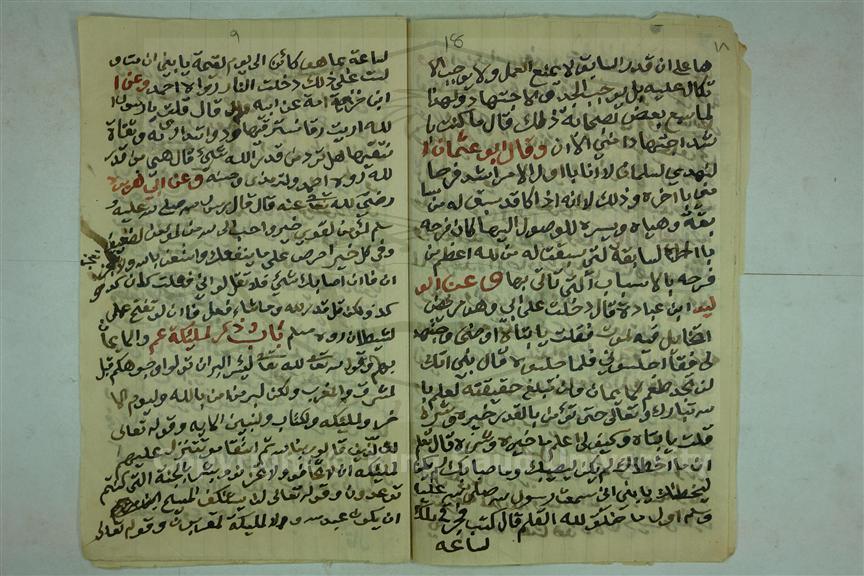 ١٨
ها على ان قدر السابق لا يمنع العمل ولا يوجب الا
تكال عليه بل يوجب الجد والاجتهاد ولهذا
لما سمع بعض الصحابه ذلك قال ما كنت با
شد اجتهادا مني الآن وقال ابو عثمان ا
لنهدي لسلمان لانا باول الامر اشد فرحا
مني بآخره وذلك لانه اذا كان قد سبق له من الله سا
بقة وهياه ويسره للوصول اليها كان فرحه
بالسابقة التي سبقت له من الله اعظم من
فرحه بالاسباب التي تاتي بها وعن الو
ليد ابن عبادة قال دخلت على ابي وهو مريض
اتخايل فيه الموت فقلت يا ابتاه اوصني واجتهد
لي فقال اجلسوني فلما اجلسوه قال يا بني انك
لن تجد طعم الايمان ولن تبلغ حقيقة العلم با
لله تبارك وتعالى حتى تؤمن بالقدر خيره وشره
قلت يا ابتاه وكيف لي اعلم ما خيره وشره قال تعلم
ان ما اخطاك لم يكن ليصيبك وما اصابك لم يكن
ليخطئك يا بني اني سمعت رسول الله صلى الله عليه
وسلم اول ما خلق الله القلم قال اكتب فجرى بتلك
الساعه
٩
لساعة بما هو كائن الى يوم القيمة يا بني ان مت و
لست على ذلك دخلت النار رواه احمد وعن ا
بن خزامة عن ابيه قال قلت يا رسول ا
لله ارايت رقا نسترقيها ودواء نتداوى به وتقاة
نتقيها هل ترد من قدر الله شيئ قال هي من قدر
الله رواه احمد والترمذي وحسنه وعن ابي هريرة
رضي الله تعا عنه قال قال رسول الله صلى الله عليه و
سلم المؤمن القوي خير واحب الى الله من المؤمن الضعيف
وفي كل خير احرص على ما ينفعك واستعن بالله ولا تعجزن
ان فاان اصابك شيئ فلا تقل لو اني فعلت كذا كان كذا و
كذا ولكن قل قدر الله وما شاء فعل فاان لو تفتح عمل
الشيطان رواه مسلم باب ذكر الملئكة عم والايما
بهم وقول الله تعا ليس البر ان تولوا وجوهكم قبل
المشرق والمغرب ولكن البر من امن بالله واليوم الا
خر والملئكه والكتاب والنبيين الايه وقوله تعالى
ان الذين قالوا ربنا الله ثم استقاموا تتنزل عليهم
الملئكه ان لا تخافوا ولا تحزنوا وابشروا بالجنة التي كنتم
توعدون وقوله تعالى لن يستنكف المسيح
ان يكون عبدا لله ولا الملئكة المقربون وقوله تعالى